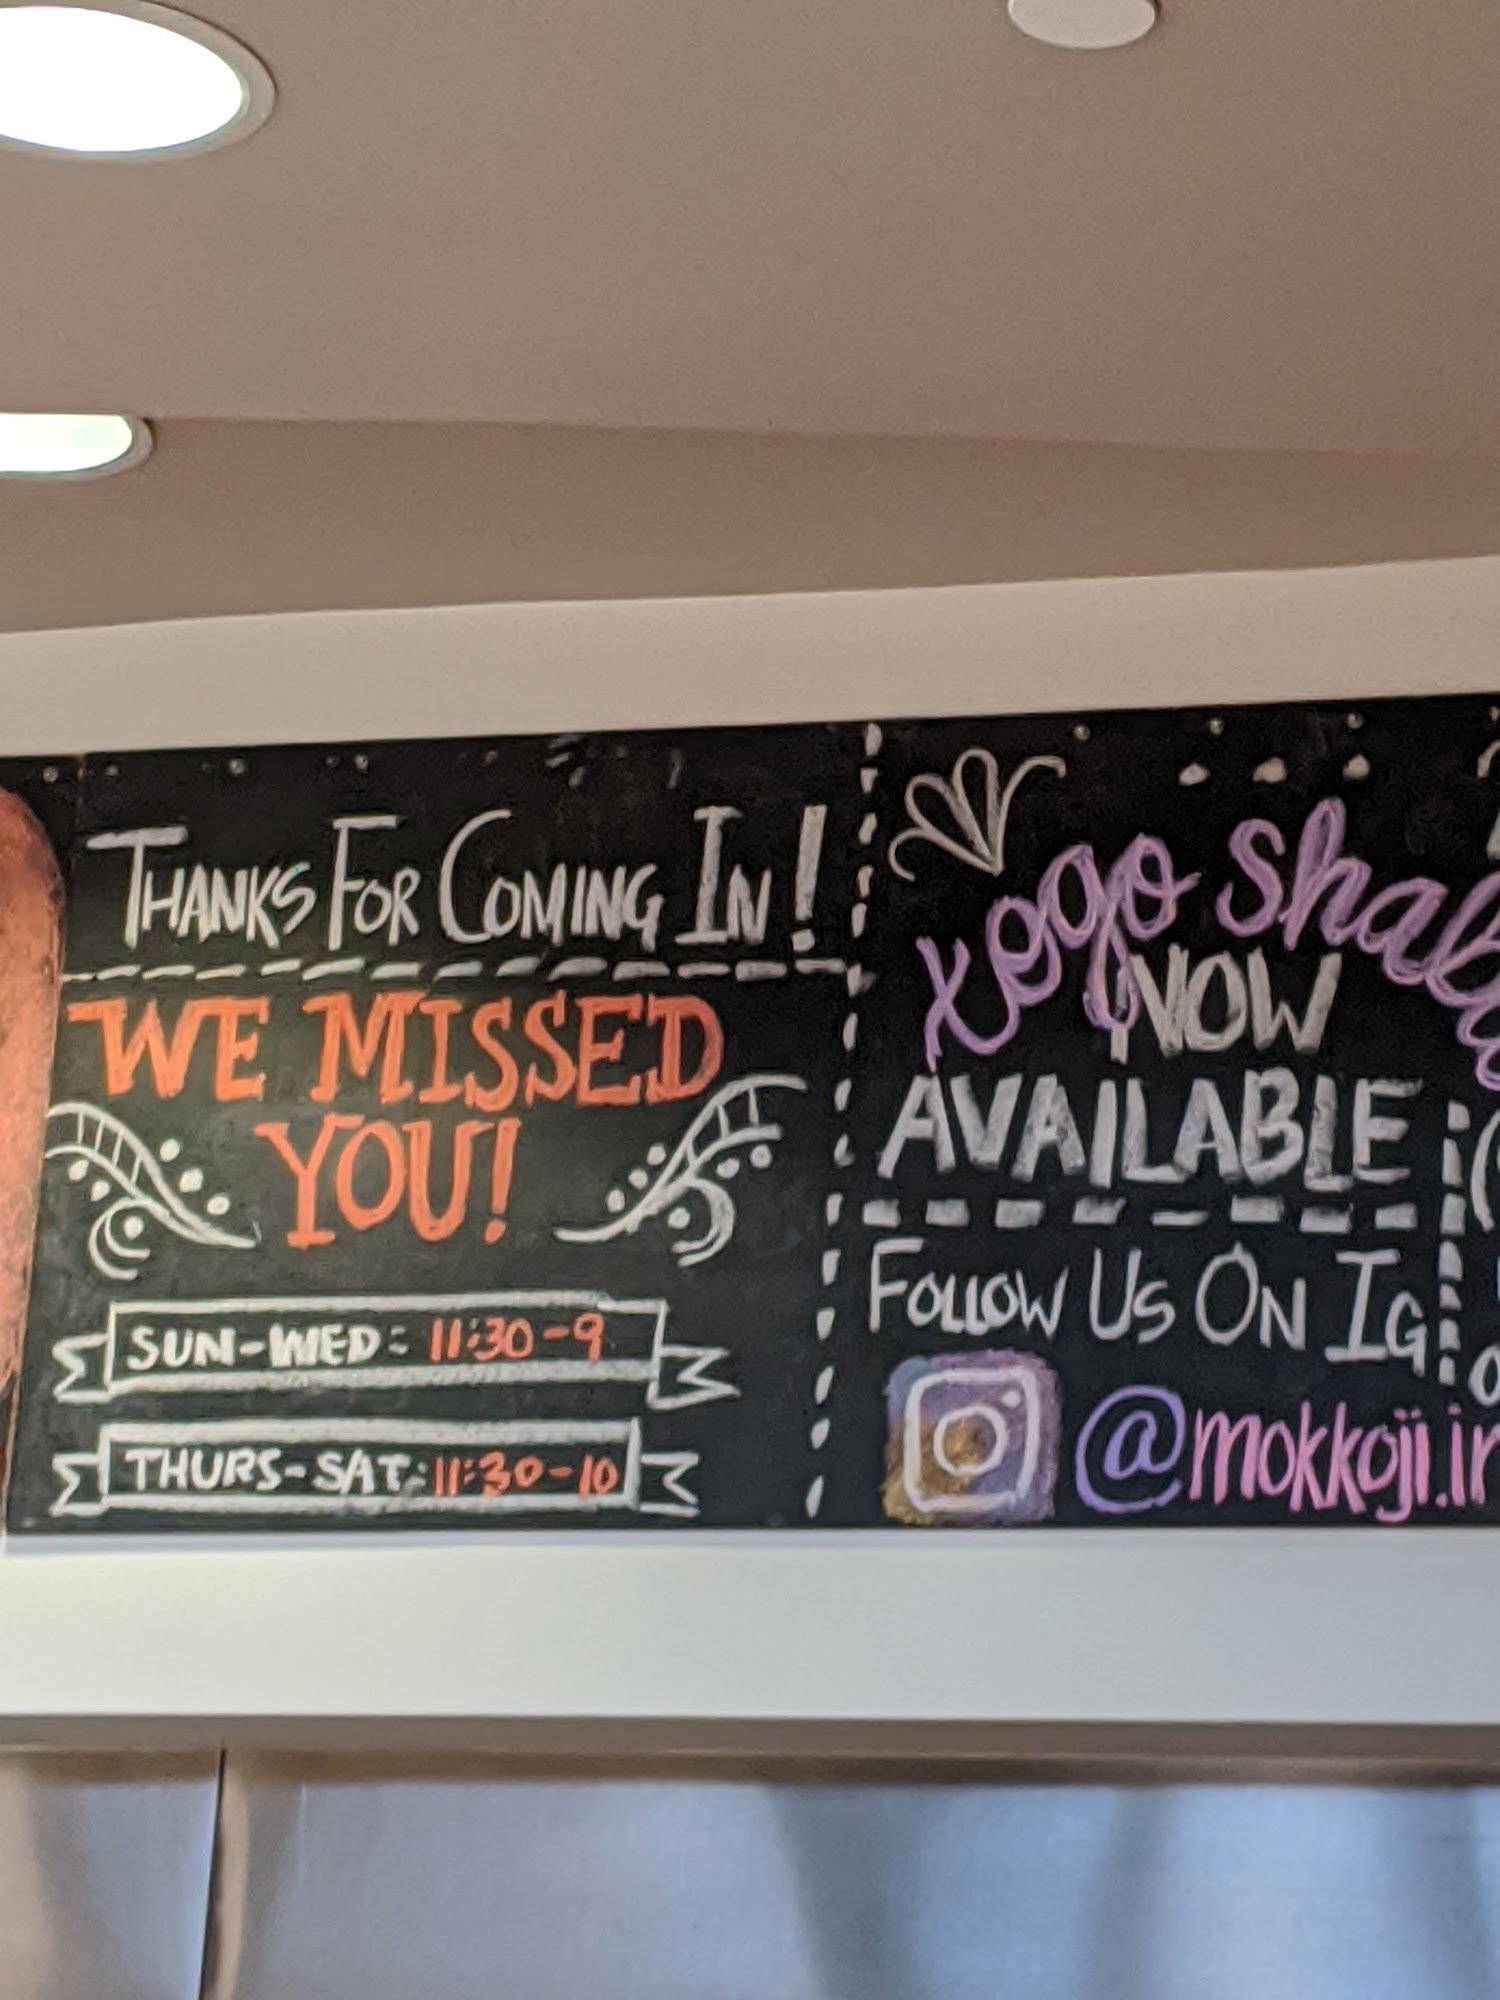 THANKS FOR COMING IN!
WE MISSED
YOU!
SUN-WED: 11:30-9
THURS-SAT: 11:30-10
NOW
AVAILABLE
FOLLOW US ON IG
@mokkoji.ir